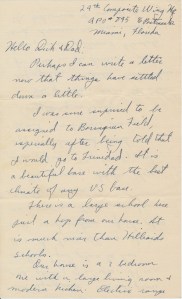 24th Composite Wing Hq
APO # 845 % Postmaster
Miami, Florida
Hello Dick & Dad
Perhaps I can write a letter
now that things have settled
down a little.
I was surprised to be
assigned to Borinquen Field,
especially after being told that
I would go to Trinidad. It is
a beautiful base with the best
climate of any US base.
There is a large school bus
just a hop from our house. It
so much nicer than Hillside
schools.
Our house is a 2 bedroom
one with a large living room &
modern kitchen. Electric range